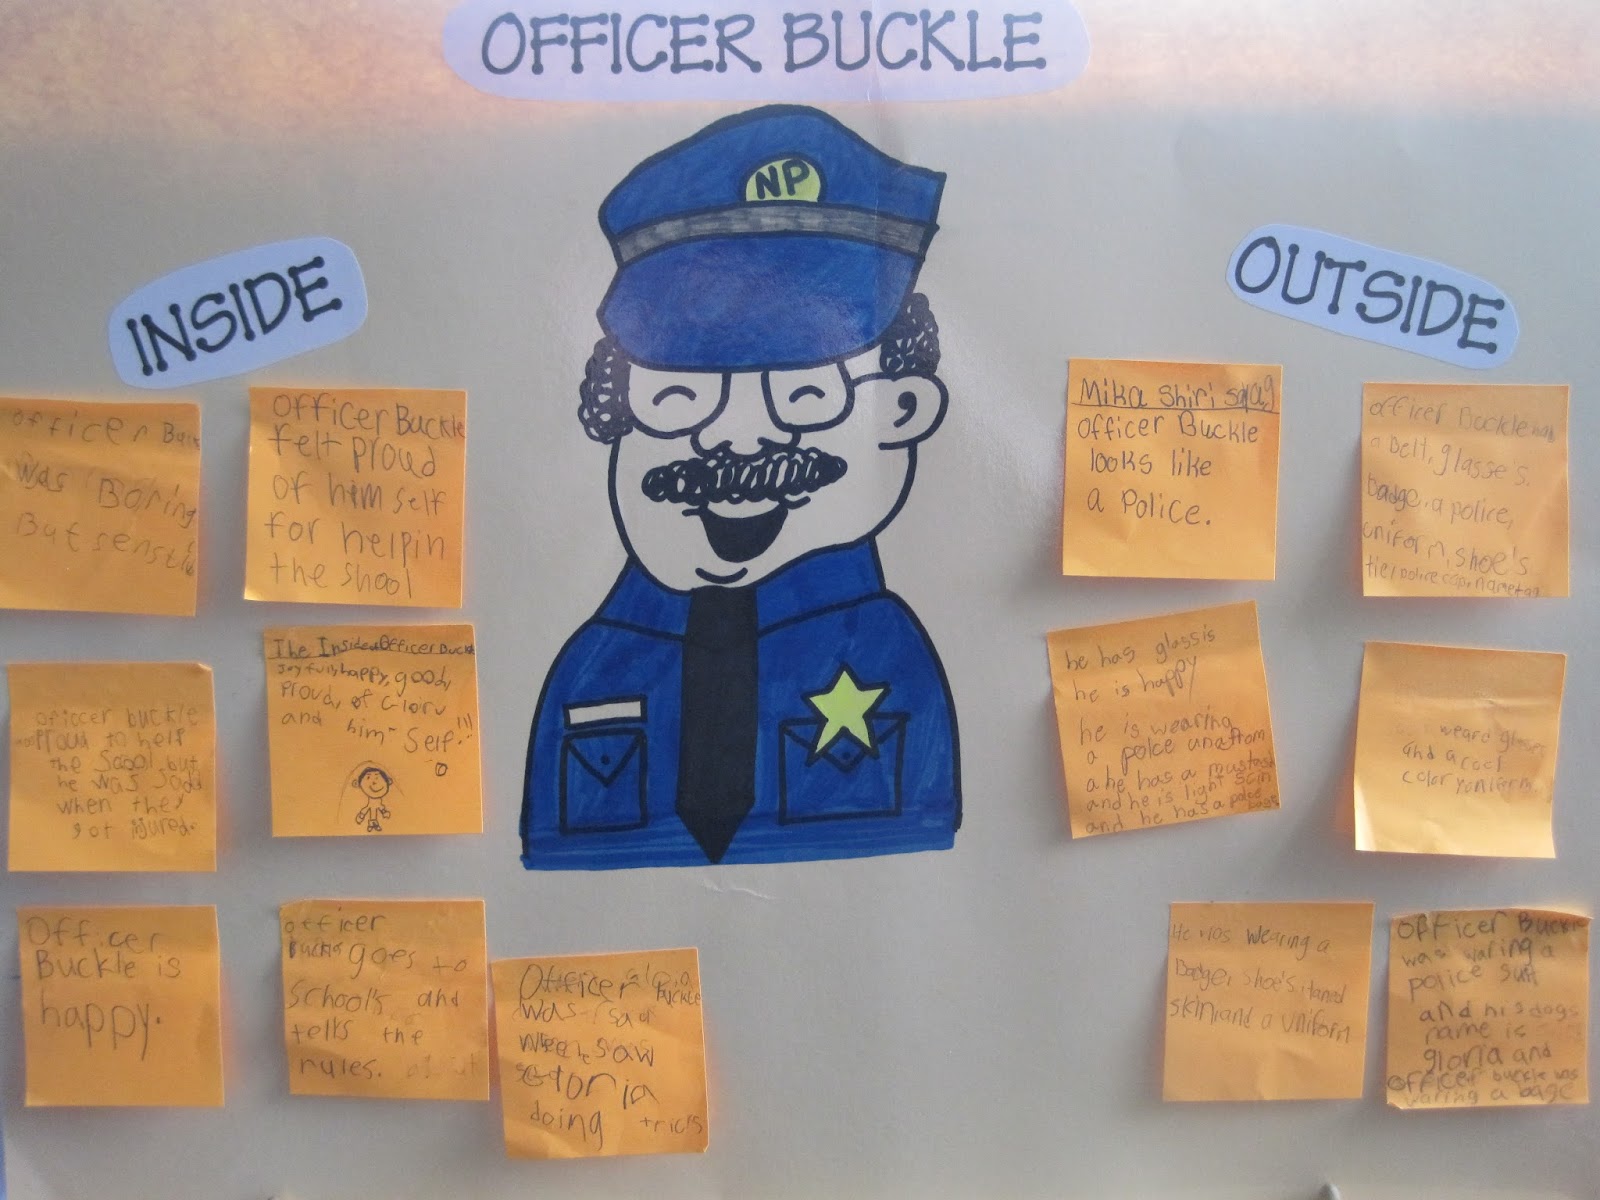 OFFICER BUCKLE
NP
INSIDE
OUTSIDE
officer Buck
was Boring
But
officer Buckle
felt proud
of him self
for helpin
the shool
officer buckle
proud to help
the Scool but
he was Sadd
when they
got njured.
The Inside of Officer Buckle
Joyfull, happy, good,
proud, of Gloru
and him-self!!!
Officer
Buckle is
happy.
officer
Buckle goes to
School's and
tells the
rules.
Officer
Buckle
was sad
saw
Gloria
doing tricks
Mika Shiri
officer Buckle
looks like
a Police.
officer Buckle has
a belt, glasse's,
badge, a police,
uniform, shoe's
tie, police cap, nametag
he has glassis
he is happy
he is wearing
a polce unafrom
a he has a mustash
and he is light Scin
and he has a polce
weard glasses
and a cool
color yoniform.
He was wearing a
Badge, shoe's, tannd
skin, and a uniform
officer Buckle
was waring a
police suit
and his dogs
name is
gloria and
officer buckle was
waring a bage